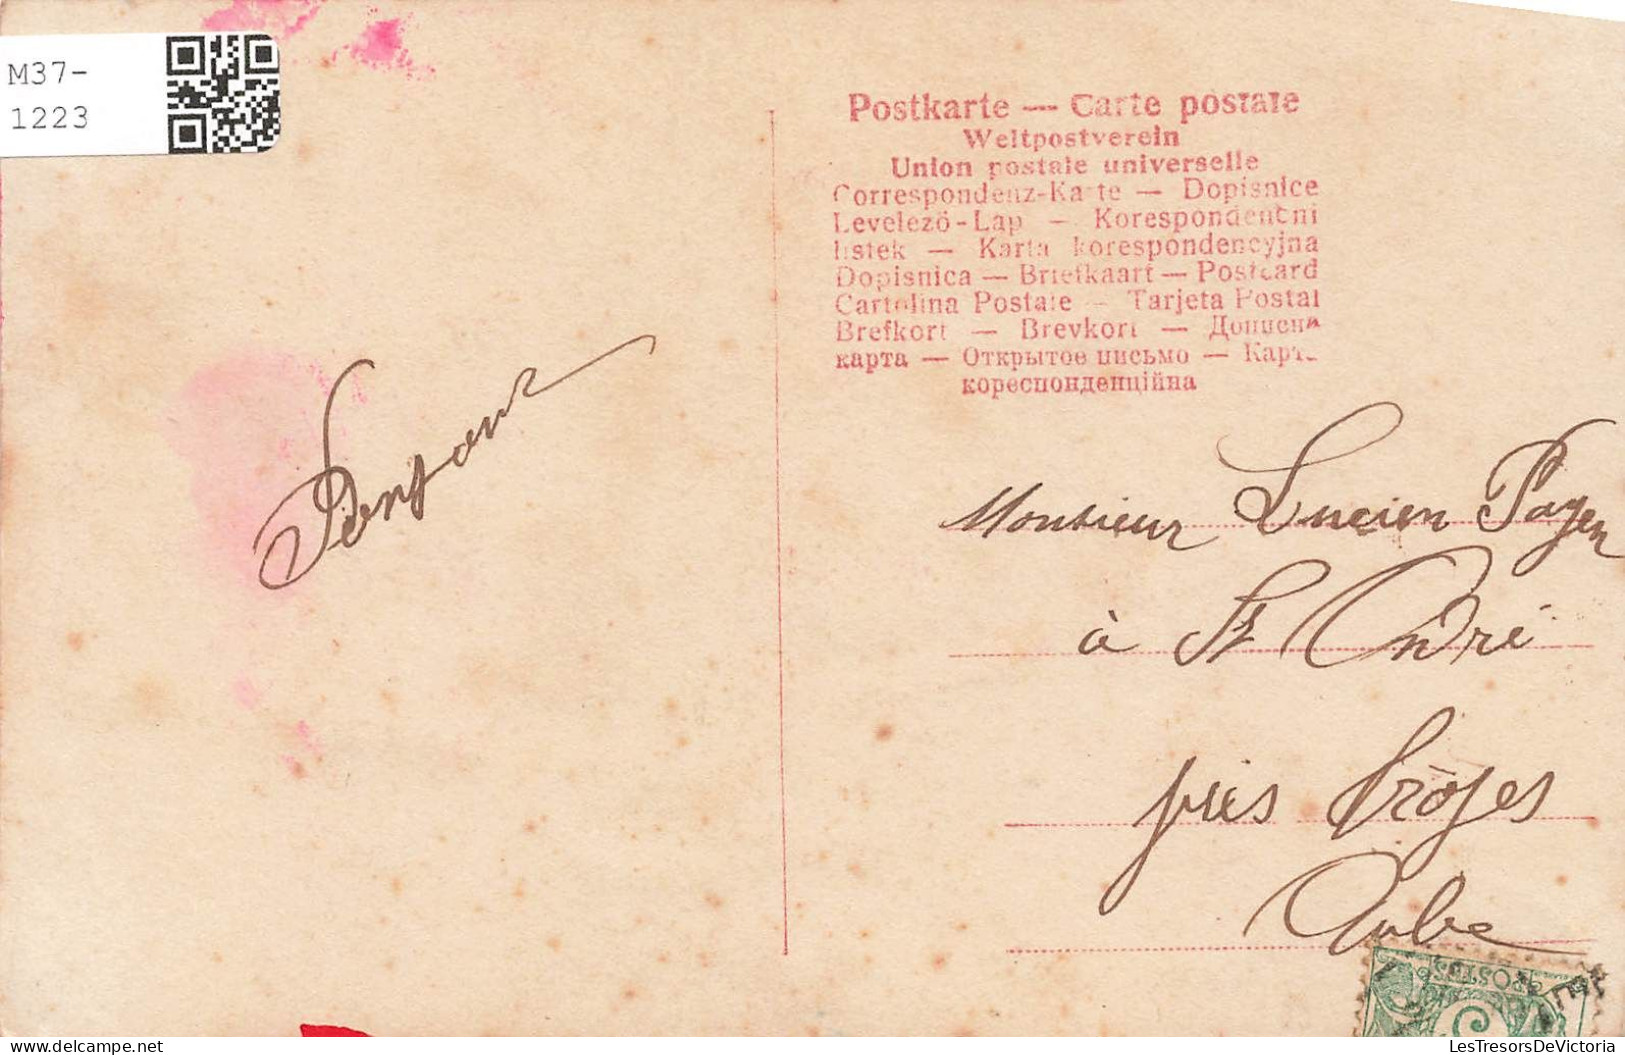 M37-
1223
Postkarte — Carte postale
Weltpostverein
Union postale universelle
Correspondenz-Karte — Dopisnice
Levelező-Lap — Korespondenčni
listek — Karta korespondencyjna
Dopisnica — Briefkaart — Postcard
Cartolina Postale — Tarjeta Postal
Brefkort — Brevkort — Дописна
карта — Открытое письмо — Карта
кореспонденційна
Monsieur Lucien Payen
à St André
près Troyes
Aube
POSTES
LesTresorsDeVictoria
www.delcampe.net